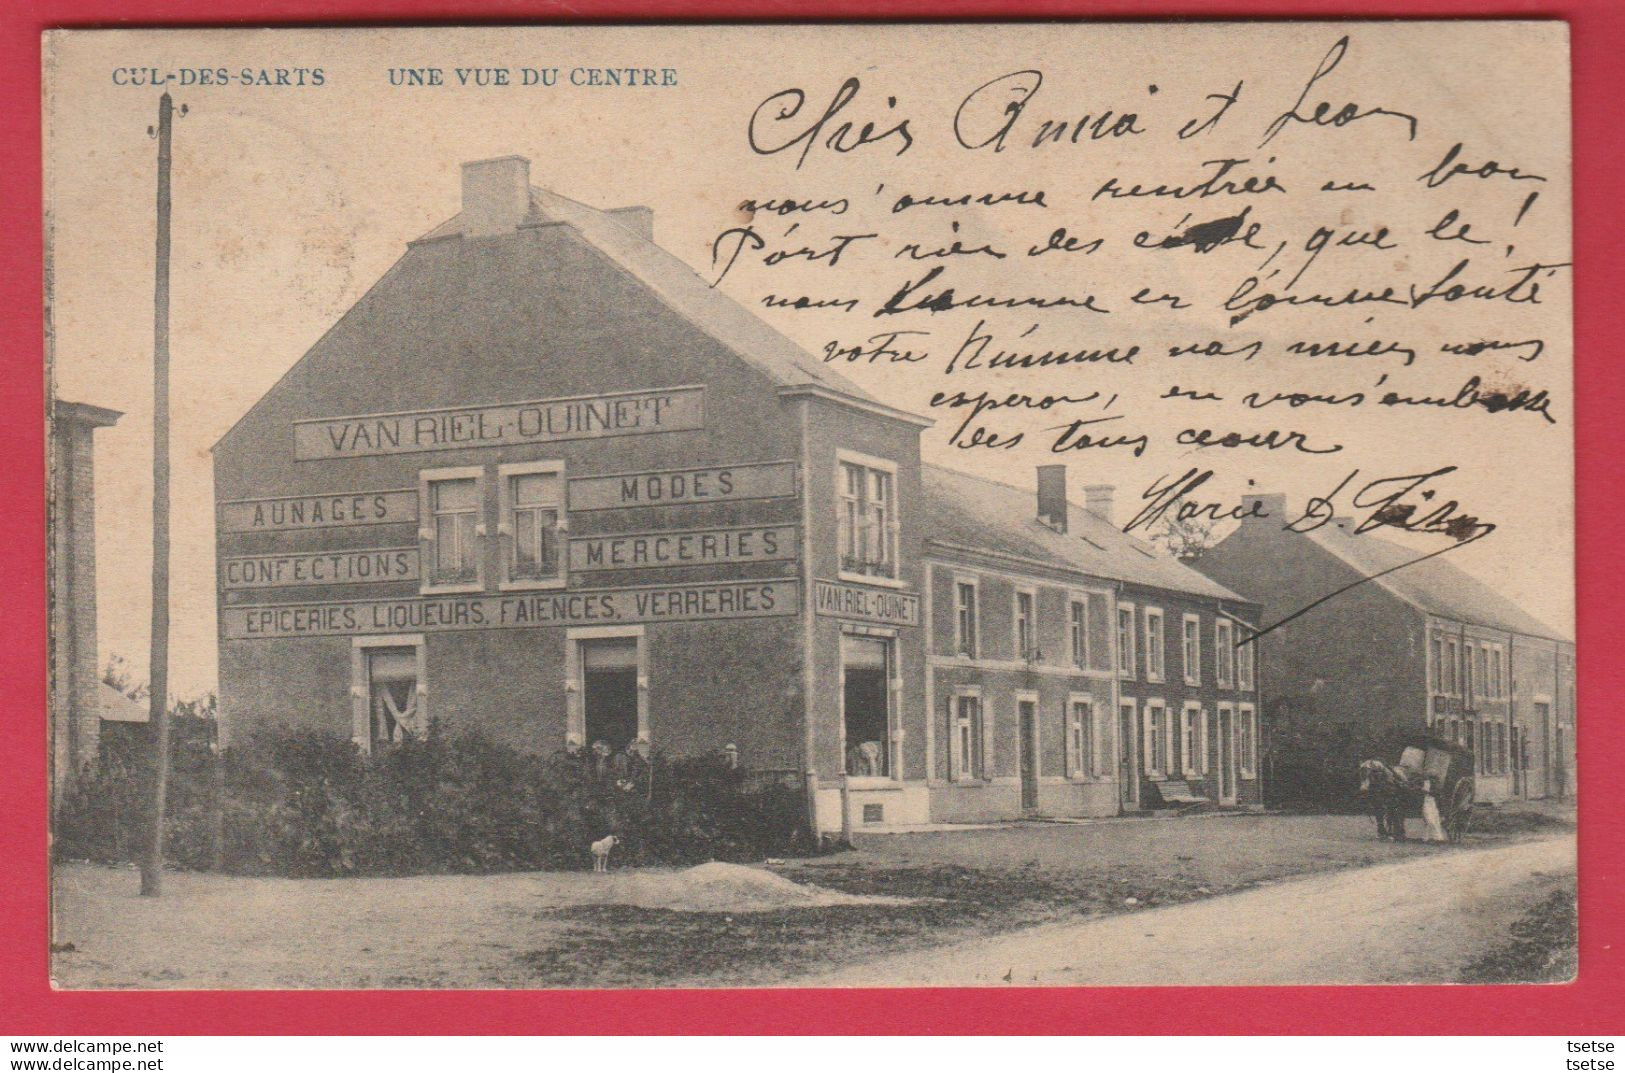 CUL-DES-SARTS UNE VUE DU CENTRE
Chès Amia et Leon
nous'omme rentrée en bon
Pórt rien des, que le!
nous en bonne Santé
votre nás mieu nous
esperon, en vous'embrasse
des tous coeur
Marie D.
VAN RIEL-QUINET
AUNAGES
MODES
CONFECTIONS
MERCERIES
EPICERIES, LIQUEURS, FAIENCES, VERRERIES
VAN RIEL-QUINET
www.delcampe.net
www.delcampe.net
tsetse
tsetse